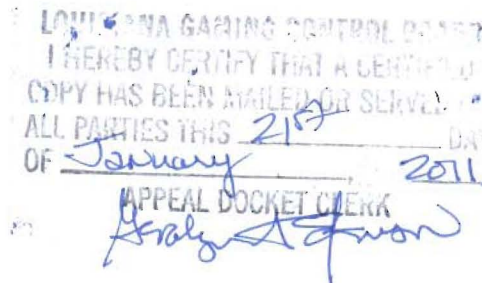 LOUISIANA GAMING CONTROL BOARD
I HEREBY CERTIFY THAT A CERTIFIED
COPY HAS BEEN MAILED OR SERVED
ALL PARTIES THIS 21st DA
OF January, 2011
APPEAL DOCKET CLERK